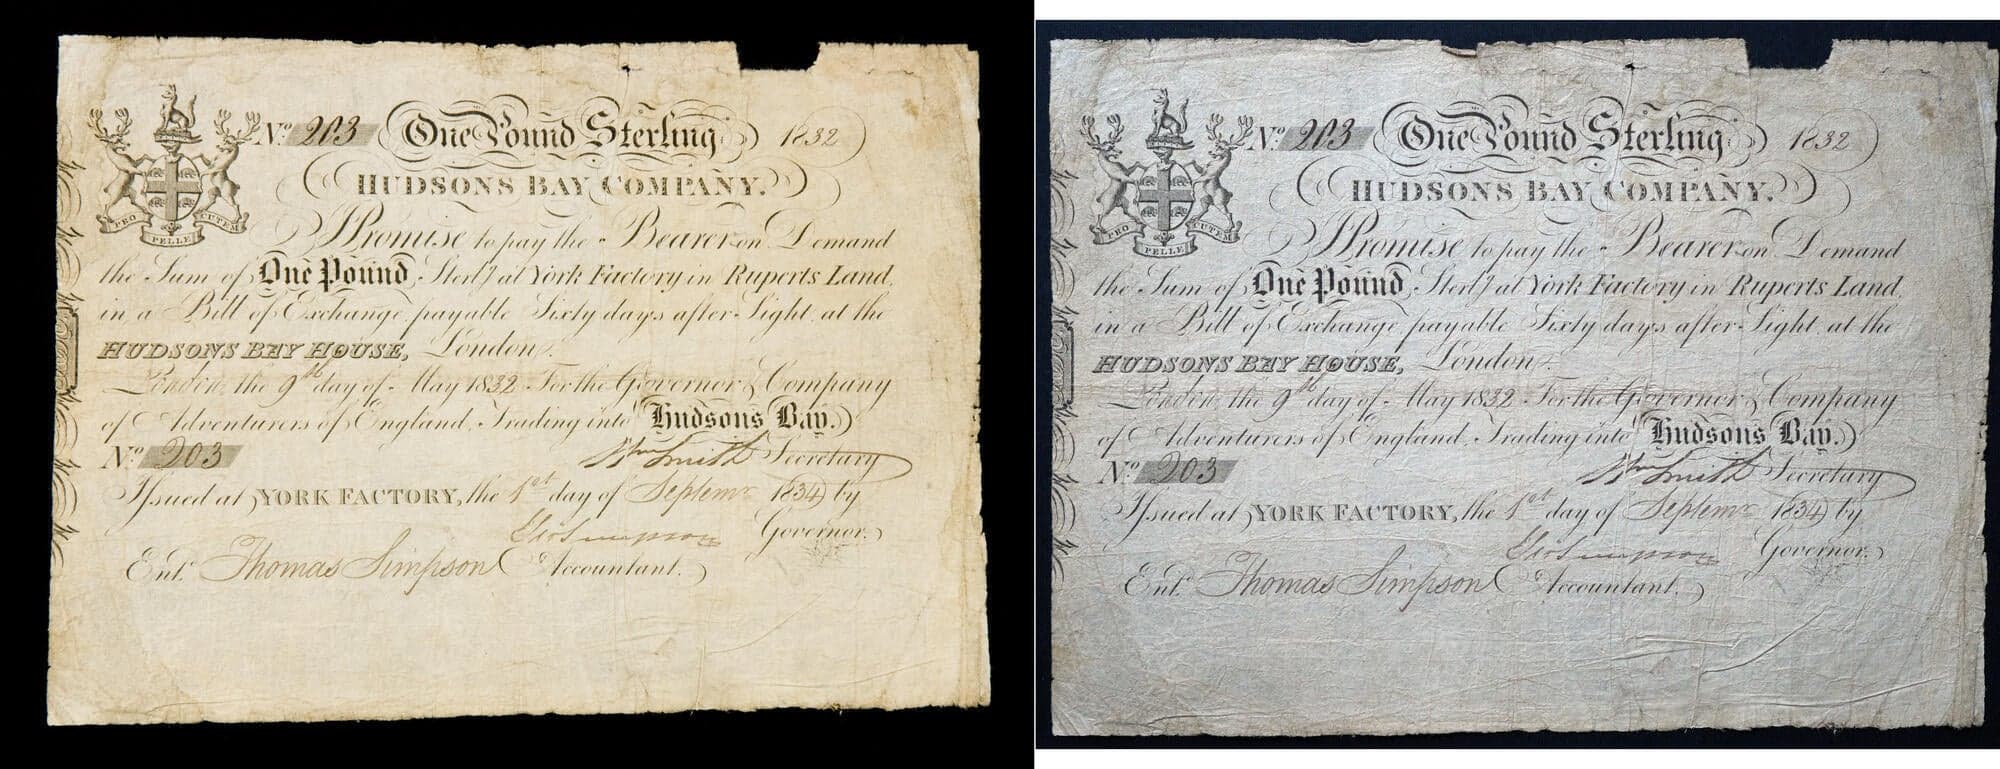 No. 203 One Pound Sterling 1832
HUDSONS BAY COMPANY.
I Promise to pay the Bearer on Demand
the Sum of One Pound Sterlg at York Factory in Ruperts Land
in a Bill of Exchange payable Sixty days after Sight at the
HUDSONS BAY HOUSE, London.
London the 9th day of May 1832 For the Governor & Company
of Adventurers of England Trading into Hudsons Bay.
No. 203 Wm Smith Secretary
Issued at YORK FACTORY, the 1st day of Septemr 1834 by
Geo Simpson Governor.
Entd. Thomas Simpson Accountant.
PRO PELLE CUTEM
No. 203 One Pound Sterling 1832
HUDSONS BAY COMPANY.
I Promise to pay the Bearer on Demand
the Sum of One Pound Sterlg at York Factory in Ruperts Land
in a Bill of Exchange payable Sixty days after Sight at the
HUDSONS BAY HOUSE, London.
London the 9th day of May 1832 For the Governor & Company
of Adventurers of England Trading into Hudsons Bay.
No. 203 Wm Smith Secretary
Issued at YORK FACTORY, the 1st day of Septemr 1834 by
Geo Simpson Governor.
Entd. Thomas Simpson Accountant.
PRO PELLE CUTEM